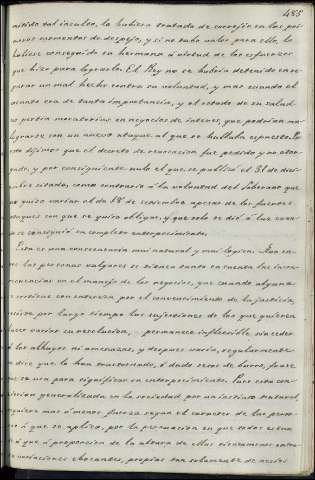 485
mitido tal insulto, la hubiera tratado de corrojir en los pri-
meros momentos de despejo, y si no tuvo valor para ello, lo
hubiese conseguido su hermana á virtud de los esfuerzos
que hizo para lograrlo. El Rey no se hubiera detenido en re-
parar un mal hecho contra su voluntad, y mas cuando el
asunto era de tanta importancia, y el estado de su salud
no permitia moratorias en negocios de interes, que podrian ma-
lograrse con un nuevo ataque al que se hallaba espuesto. Ya
dijimos que el decreto de revocacion fue pedido y no otor-
gado, y por consiguiente nulo el que se publicó el 31 de diciem-
bre citado, como contrario á la voluntad del Soberano que
no quiso variar el del 18 de setiembre apesar de los fuertes
ataques con que se quiso obligar, y que solo se dió á luz cuan-
do se consiguió su completo entorpecimiento.
Esta es una consecuencia mui natural y mui lógica. Aun en-
tre las personas vulgares se tienen tanto en cuenta las incon-
secuencias en el manejo de los negocios, que cuando alguna
se conduce con entereza por el convencimiento de la justicia,
resiste por largo tiempo las sujestiones de los que quieren
hacer variar su resolucion, permanece inflecsible, sin ceder
á los alhagos ni amenazas, y despues varia, regularmente
se dice que lo han trastornado, ó dado sesos de burro, frase
que se usa para significar su entorpecimiento. Pues esta con-
viccion generalizada en la sociedad por un instinto natural,
adquiere mas ó menos fuerza segun el caracter de las perso-
nas á que se aplica, por la persuasion en que todos estan
de que á proporcion de la altura de ellas
variaciones chocantes, propias tan solamente de necios